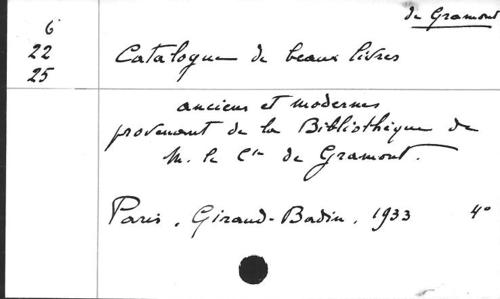 de Gramont
6
22
25
Catalogue de beaux livres
anciens et modernes
provenant de la Bibliothèque de
M. le Cte de Gramont.
Paris, Giraud-Badin, 1933 4°